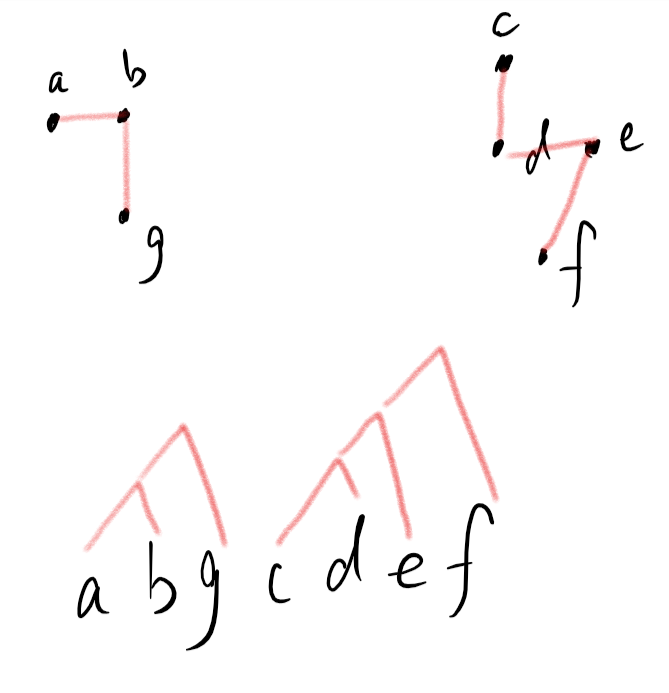 a b
g
c
d e
f
a b g c d e f